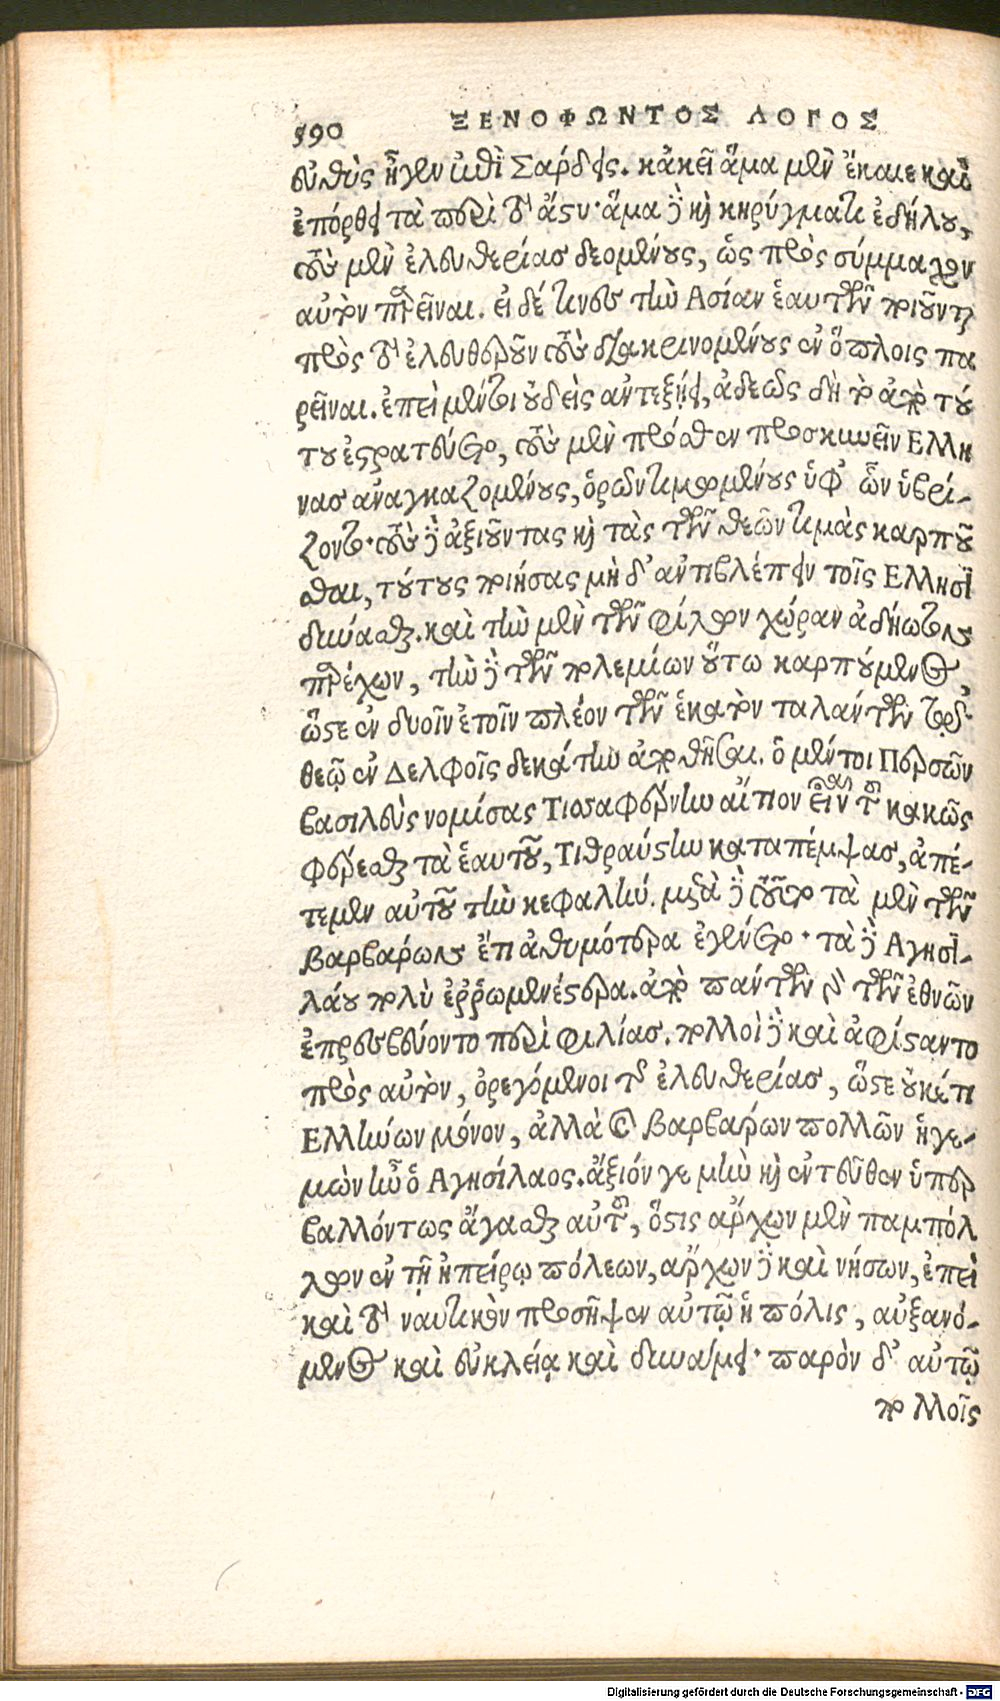 590 ΞΕΝΟΦΩΝΤΟΣ ΛΟΓΟΣ
εὐθὺς ἦγεν ἐπὶ Σάρδεις. κἀκεῖ ἅμα μὲν ἔκαιε καὶ
ἐπόρθει τὰ περὶ τὸ ἄστυ· ἅμα δὲ καὶ κηρύγματι ἐδήλου,
τοὺς μὲν ἐλευθερίας δεομένους, ὡς πρὸς σύμμαχον
αὐτὸν παρεῖναι. εἰ δέ τινες τὴν Ασίαν ἑαυτῶν ποιοῦνται
πρὸς τὸ ἐλευθεροῦν τοὺς διακρινομένους ἐν ὅπλοις πα
ρεῖναι. ἐπεὶ μέντοι οὐδεὶς ἀντεξῄει, ἀδεῶς δὴ τὸ ἀπὸ τού
του ἐστρατεύετο, τοὺς μὲν πρόσθεν προσκυνεῖν Ελλη
νας ἀναγκαζομένους, ὁρῶν τιμωμένους ὑφ' ὧν ὑβρί-
ζοντο· τοὺς δὲ ἀξιοῦντας καὶ τὰς τῶν θεῶν τιμὰς καρποῦ
σθαι, τούτους ποιήσας μὴ δ' ἀντιβλέπειν τοῖς Ελλησι
δύνασθαι. καὶ τὴν μὲν τῶν φίλων χώραν ἀδῄωτον
παρέχων, τὴν δὲ τῶν πολεμίων οὕτω καρπούμενος,
ὥστε ἐν δυοῖν ἐτοῖν πλέον τῶν ἑκατὸν ταλάντων τῷ
θεῷ ἐν Δελφοῖς δεκάτην ἀποθῦσαι. ὁ μέντοι Περσῶν
βασιλεὺς νομίσας Τισσαφέρνην αἴτιον εἶναι τοῦ κακῶς
φέρεσθαι τὰ ἑαυτοῦ, Τιθραύστην καταπέμψας, ἀπέ-
τεμεν αὐτοῦ τὴν κεφαλήν. μετὰ δὲ τοῦτο τὰ μὲν τῶν
βαρβάρων ἔτι ἀθυμότερα ἐγένετο· τὰ δὲ Αγησι-
λάου πολὺ ἐῤῥωμενέστερα. ἀπὸ πάντων γὰρ τῶν ἐθνῶν
ἐπρεσβεύοντο περὶ φιλίας. πολλοὶ δὲ καὶ ἀφίσαντο
πρὸς αὐτὸν, ὀρεγόμενοι τῆς ἐλευθερίας, ὥστε οὐκέτι
Ελλήνων μόνον, ἀλλὰ καὶ βαρβάρων πολλῶν ἡγε-
μὼν ἦν ὁ Αγησίλαος. ἄξιόν γε μὴν καὶ ἐντεῦθεν ὑπερ
βαλλόντως ἄγασθαι αὐτοῦ, ὅστις ἄρχων μὲν παμπόλ
λων ἐν τῇ ἠπείρῳ πόλεων, ἄρχων δὲ καὶ νήσων, ἐπεὶ
καὶ τὸ ναυτικὸν προσῆψεν αὐτῷ ἡ πόλις, αὐξανό-
μενος καὶ εὐκλείᾳ καὶ δυνάμει· παρὸν δ' αὐτῷ
πολλοῖς
Digitalisierung gefördert durch die Deutsche Forschungsgemeinschaft - DFG